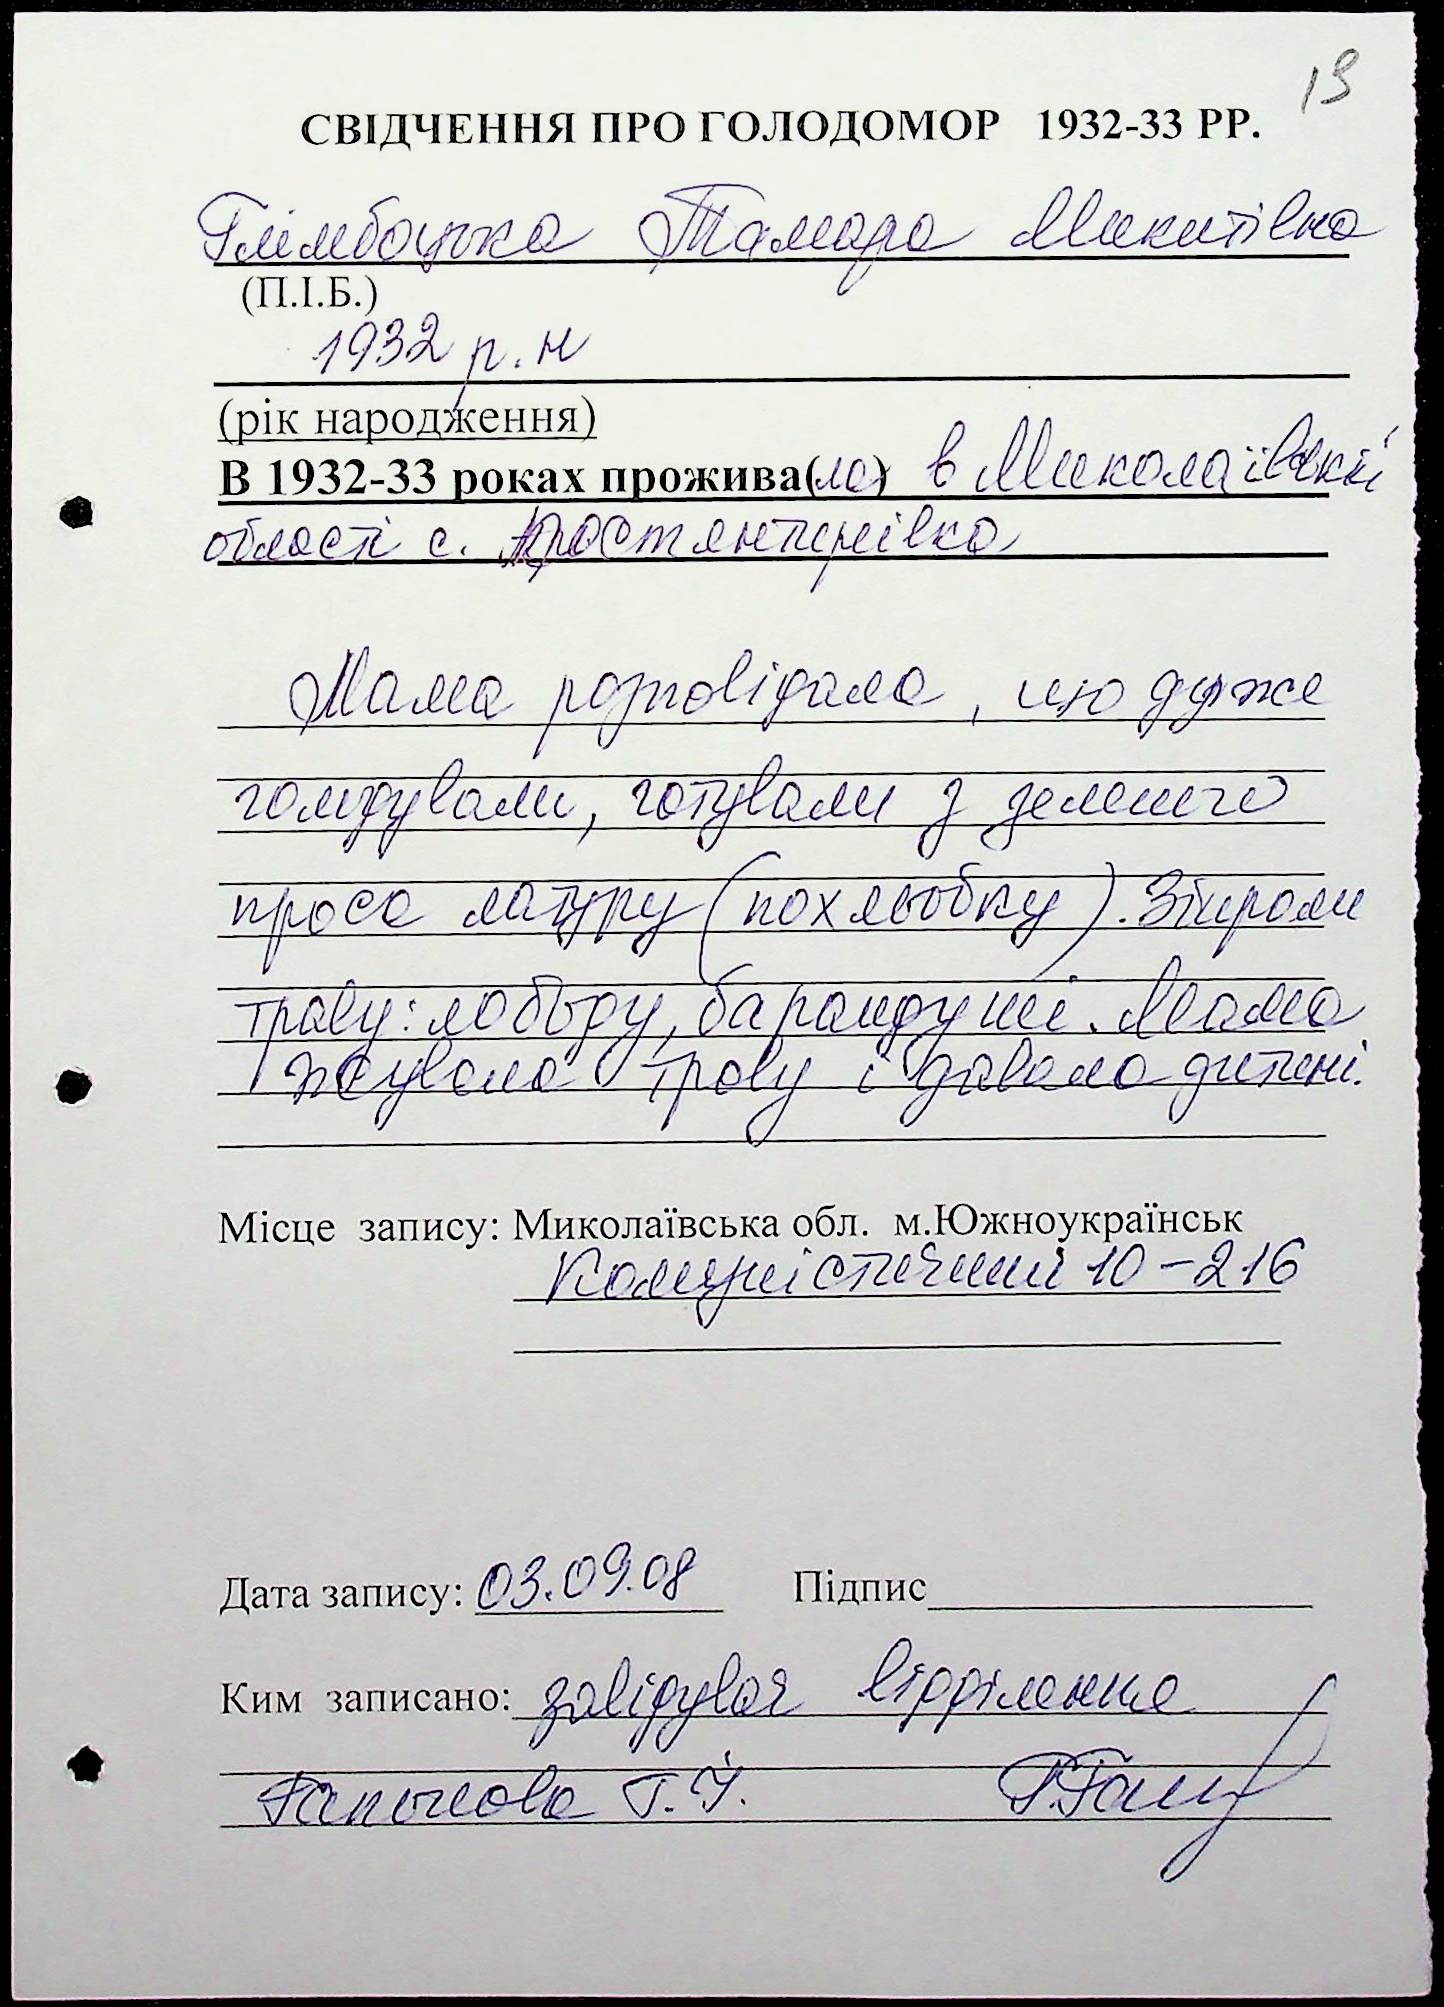 19
СВІДЧЕННЯ ПРО ГОЛОДОМОР 1932-33 РР.
Глімбоцька Тамара Микитівна
(П.І.Б.)
1932 р.н
(рік народження)
В 1932-33 роках прожива(ла) в Миколаївскі
області с.
Мама розповідала, що дуже
голодували, готували з зеленого
проса мацуру (похльобку). Збирали
траву: лободу, барандуші. Мама
жувала траву і давала дитені.
Місце запису: Миколаївська обл. м.Южноукраїнськ
Комуністичний 10-216
Дата запису: 03.09.08 Підпис
Ким записано: завідувач відділення
Г.І.